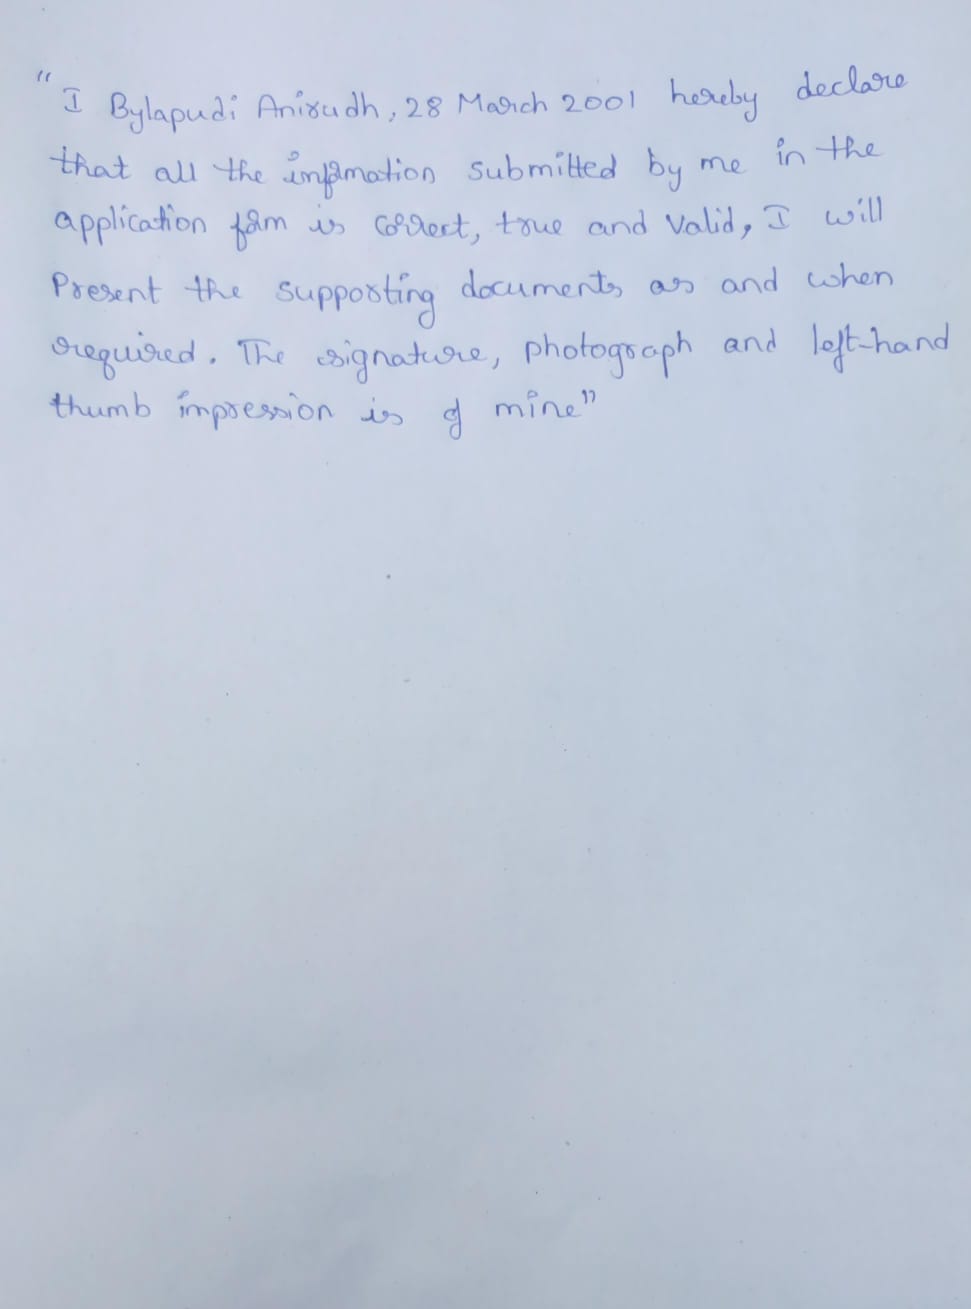 "I Bylapudi Anirudh, 28 March 2001 hereby declare
that all the information submitted by me in the
application form is correct, true and valid, I will
Present the supporting documents as and when
required. The signature, photograph and left-hand
thumb impression is of mine"